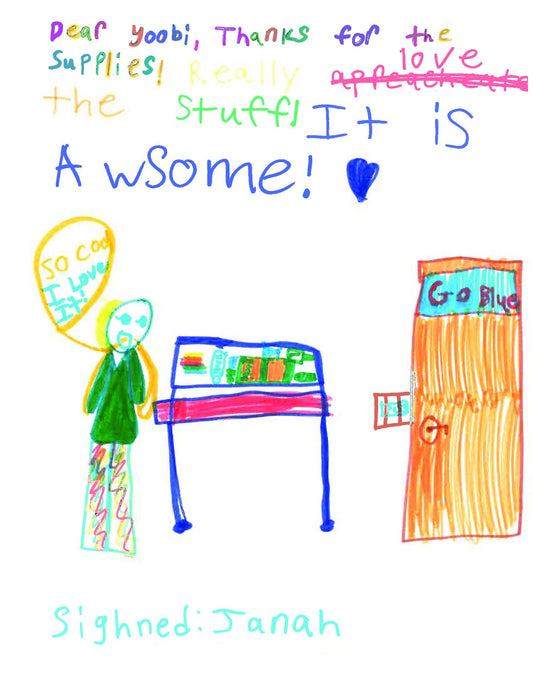 Dear Yoobi, Thanks for the
Supplies! Really love
the Stuff! It is
Awsome!
SO COOl
I Love
It!
Go Blue
Sighned: Janah